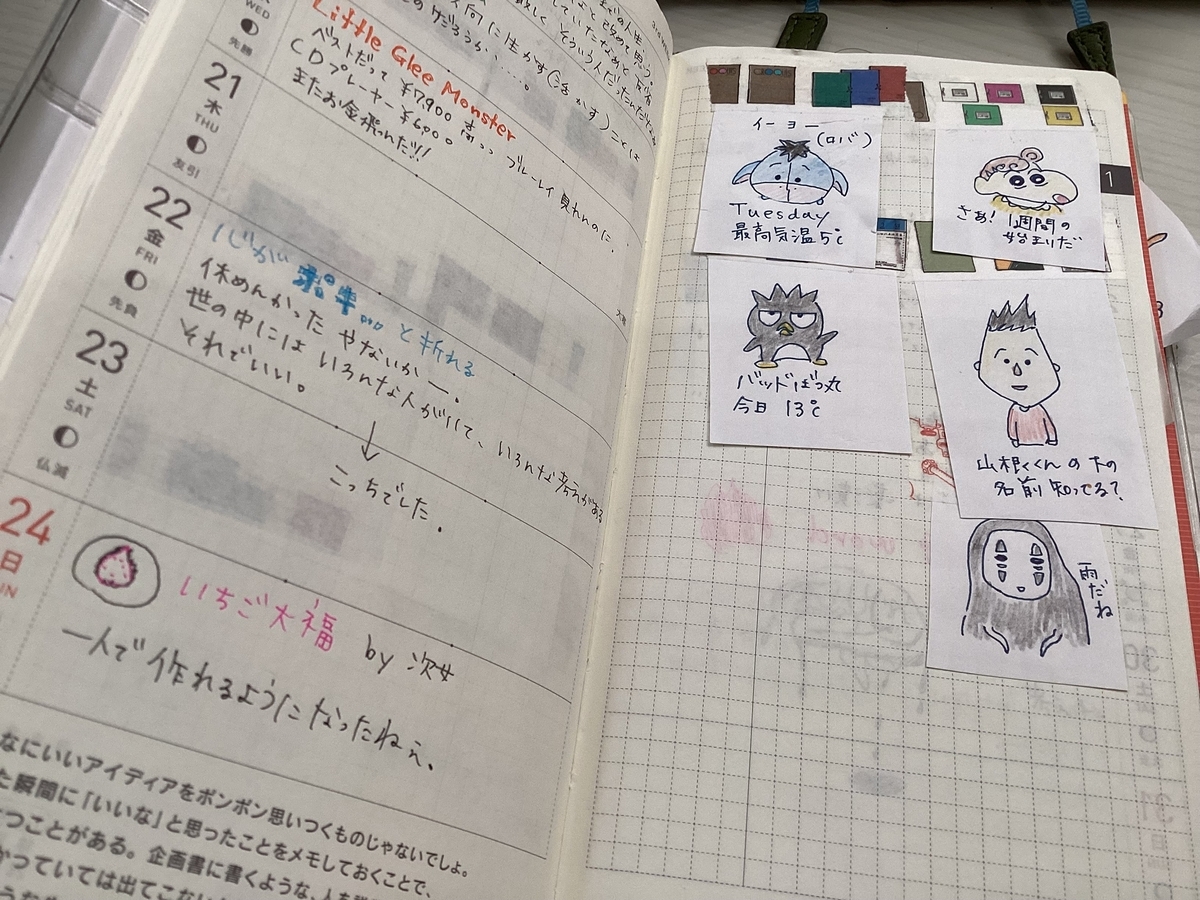 WED
先勝
Little Glee Monster
ベストだって ¥7,900 高っっ ブルーレイ 見れんのに、
CDプレーヤー ¥6,900。
またお金飛んだッ!!
21
木
THU
友引
22
金
FRI
先負
心が 折れる
休めんかった やないかー。
世の中には いろんな人がいて、いろんな考えがある
それでいい。
23
土
SAT
仏滅
↓
こっちでした。
24
日
いちご大福 by 次女
一人で作れるようになったねぇ。
なにいいアイディアをポンポン思いつくものじゃないでしょ。
た瞬間に「いいな」と思ったことをメモしておくことで、
つことがある。企画書に書くような、人を
かっていては出てこない
1
イーヨー
(ロバ)
Tuesday
最高気温5℃
さぁ!1週間の
始まりだ
バッドばつ丸
今日 13℃
山根くんの下の
名前知ってる?
雨だね